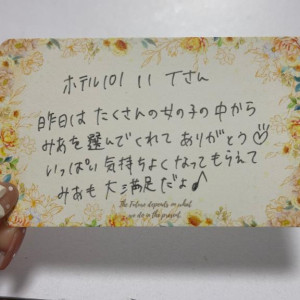 ホテル101 11 Tさん
昨日は たくさんの女の子の中から
みあを選んでくれて ありがとう♡
いっぱい気持ちよくなってもらえて
みあも大満足だよ♪
The Future depends on what
we do in the present.